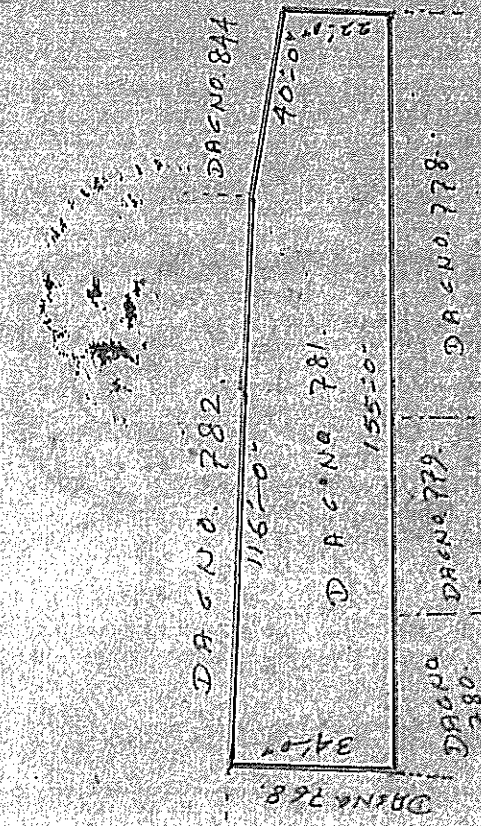 DAG NO. 844
40'-0"
22'-0"
DAG NO. 782.
116'-0"
DAG NO 781.
155'-0"
34'-0"
DAG NO. 778.
DAG NO. 779.
DAG NO
780.
DAG NO 768.